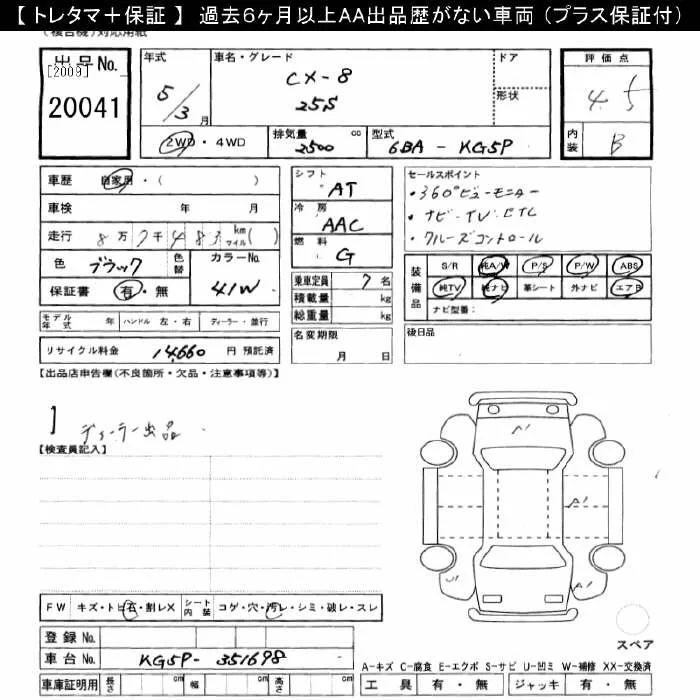 【トレタマ＋保証】 過去6ヶ月以上AA出品歴がない車両（プラス保証付）
(複合機)対応用紙
出品No.
[2009]
20041
年式
5/3 月
車名・グレード
CX-8
25S
ドア
形状
評価点
4.5
内装
B
2WD・4WD
排気量
2500 cc
型式
6BA - KG5P
車歴 自家用・( )
車検 年 月
走行 8万7千483 km マイル( )
色 ブラック 色替
カラーNo. 41W
保証書 有・無
シフト
AT
冷房
AAC
燃料
G
乗車定員 7名
積載量 kg
総重量 kg
セールスポイント
・360°ビューモニター
・ナビ・TV・ETC
・クルーズコントロール
装備品
S/R 純A/W P/S P/W ABS
純TV 純ナビ 革シート 外ナビ エアB
ナビ型番：
モデル年式 年 ハンドル 左・右 ディーラー・並行
名変期限
月 日
後日品
リサイクル料金 14,660 円 預託済
【出品店申告欄(不良箇所・欠品・注意事項等)】
ディーラー出品
【検査員記入】
A1
A1
U1
A1
FW キズ・トビ石・割レX シート内装 コゲ・穴・汚レ・シミ・破レ・スレ
スペア
登録No.
車台No. KG5P-351698
車庫証明用 長さ cm 幅 cm 高さ cm
A-キズ C-腐食 E-エクボ S-サビ U-凹ミ W-補修 XX-交換済
工具 有・無 ジャッキ 有・無